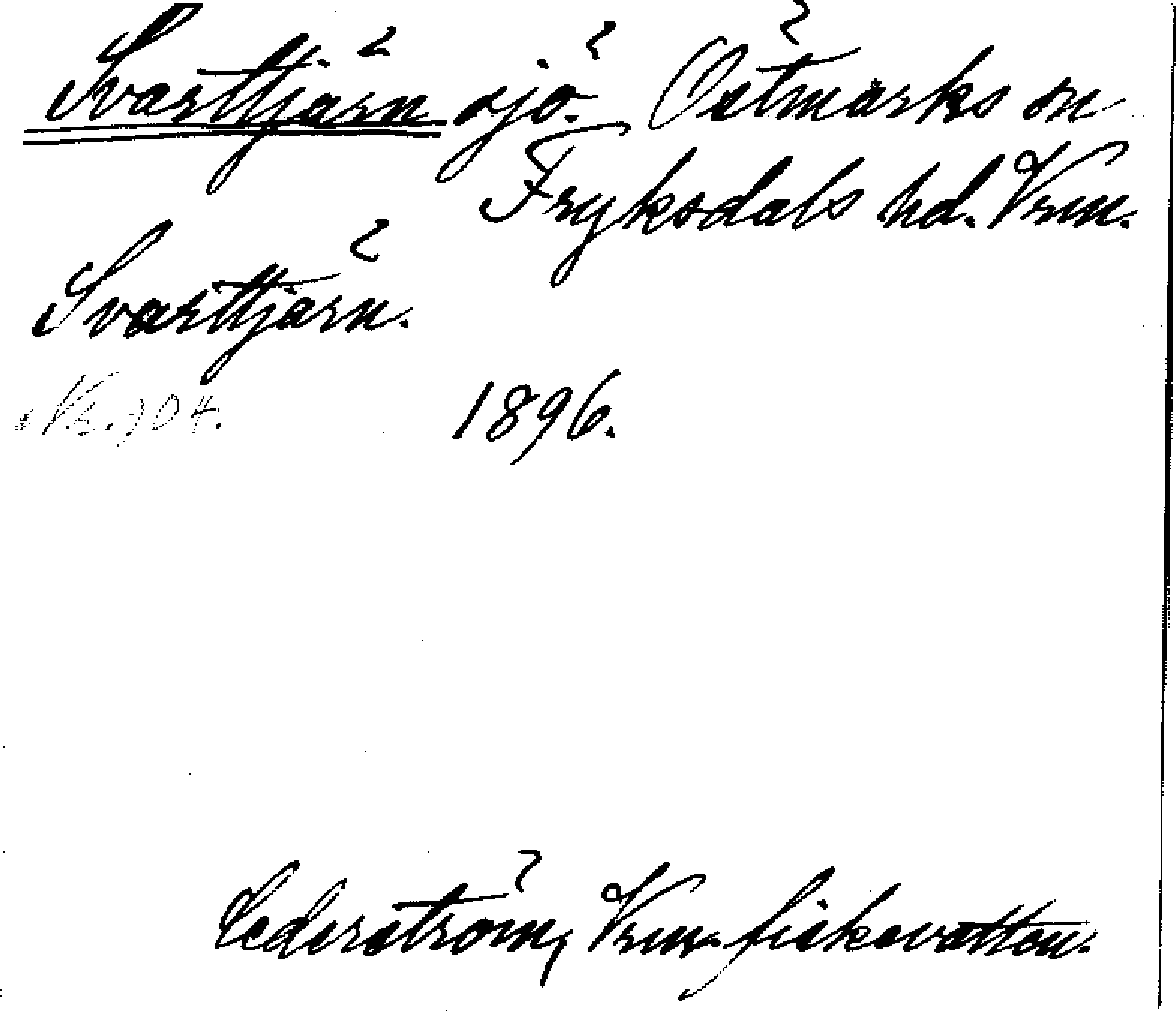 Svarttjärn sjö. Östmarks sn
Fryksdals hd. Vrm.
Svarttjärn.
1896.
Cederström, Vrm. fiskevatten.